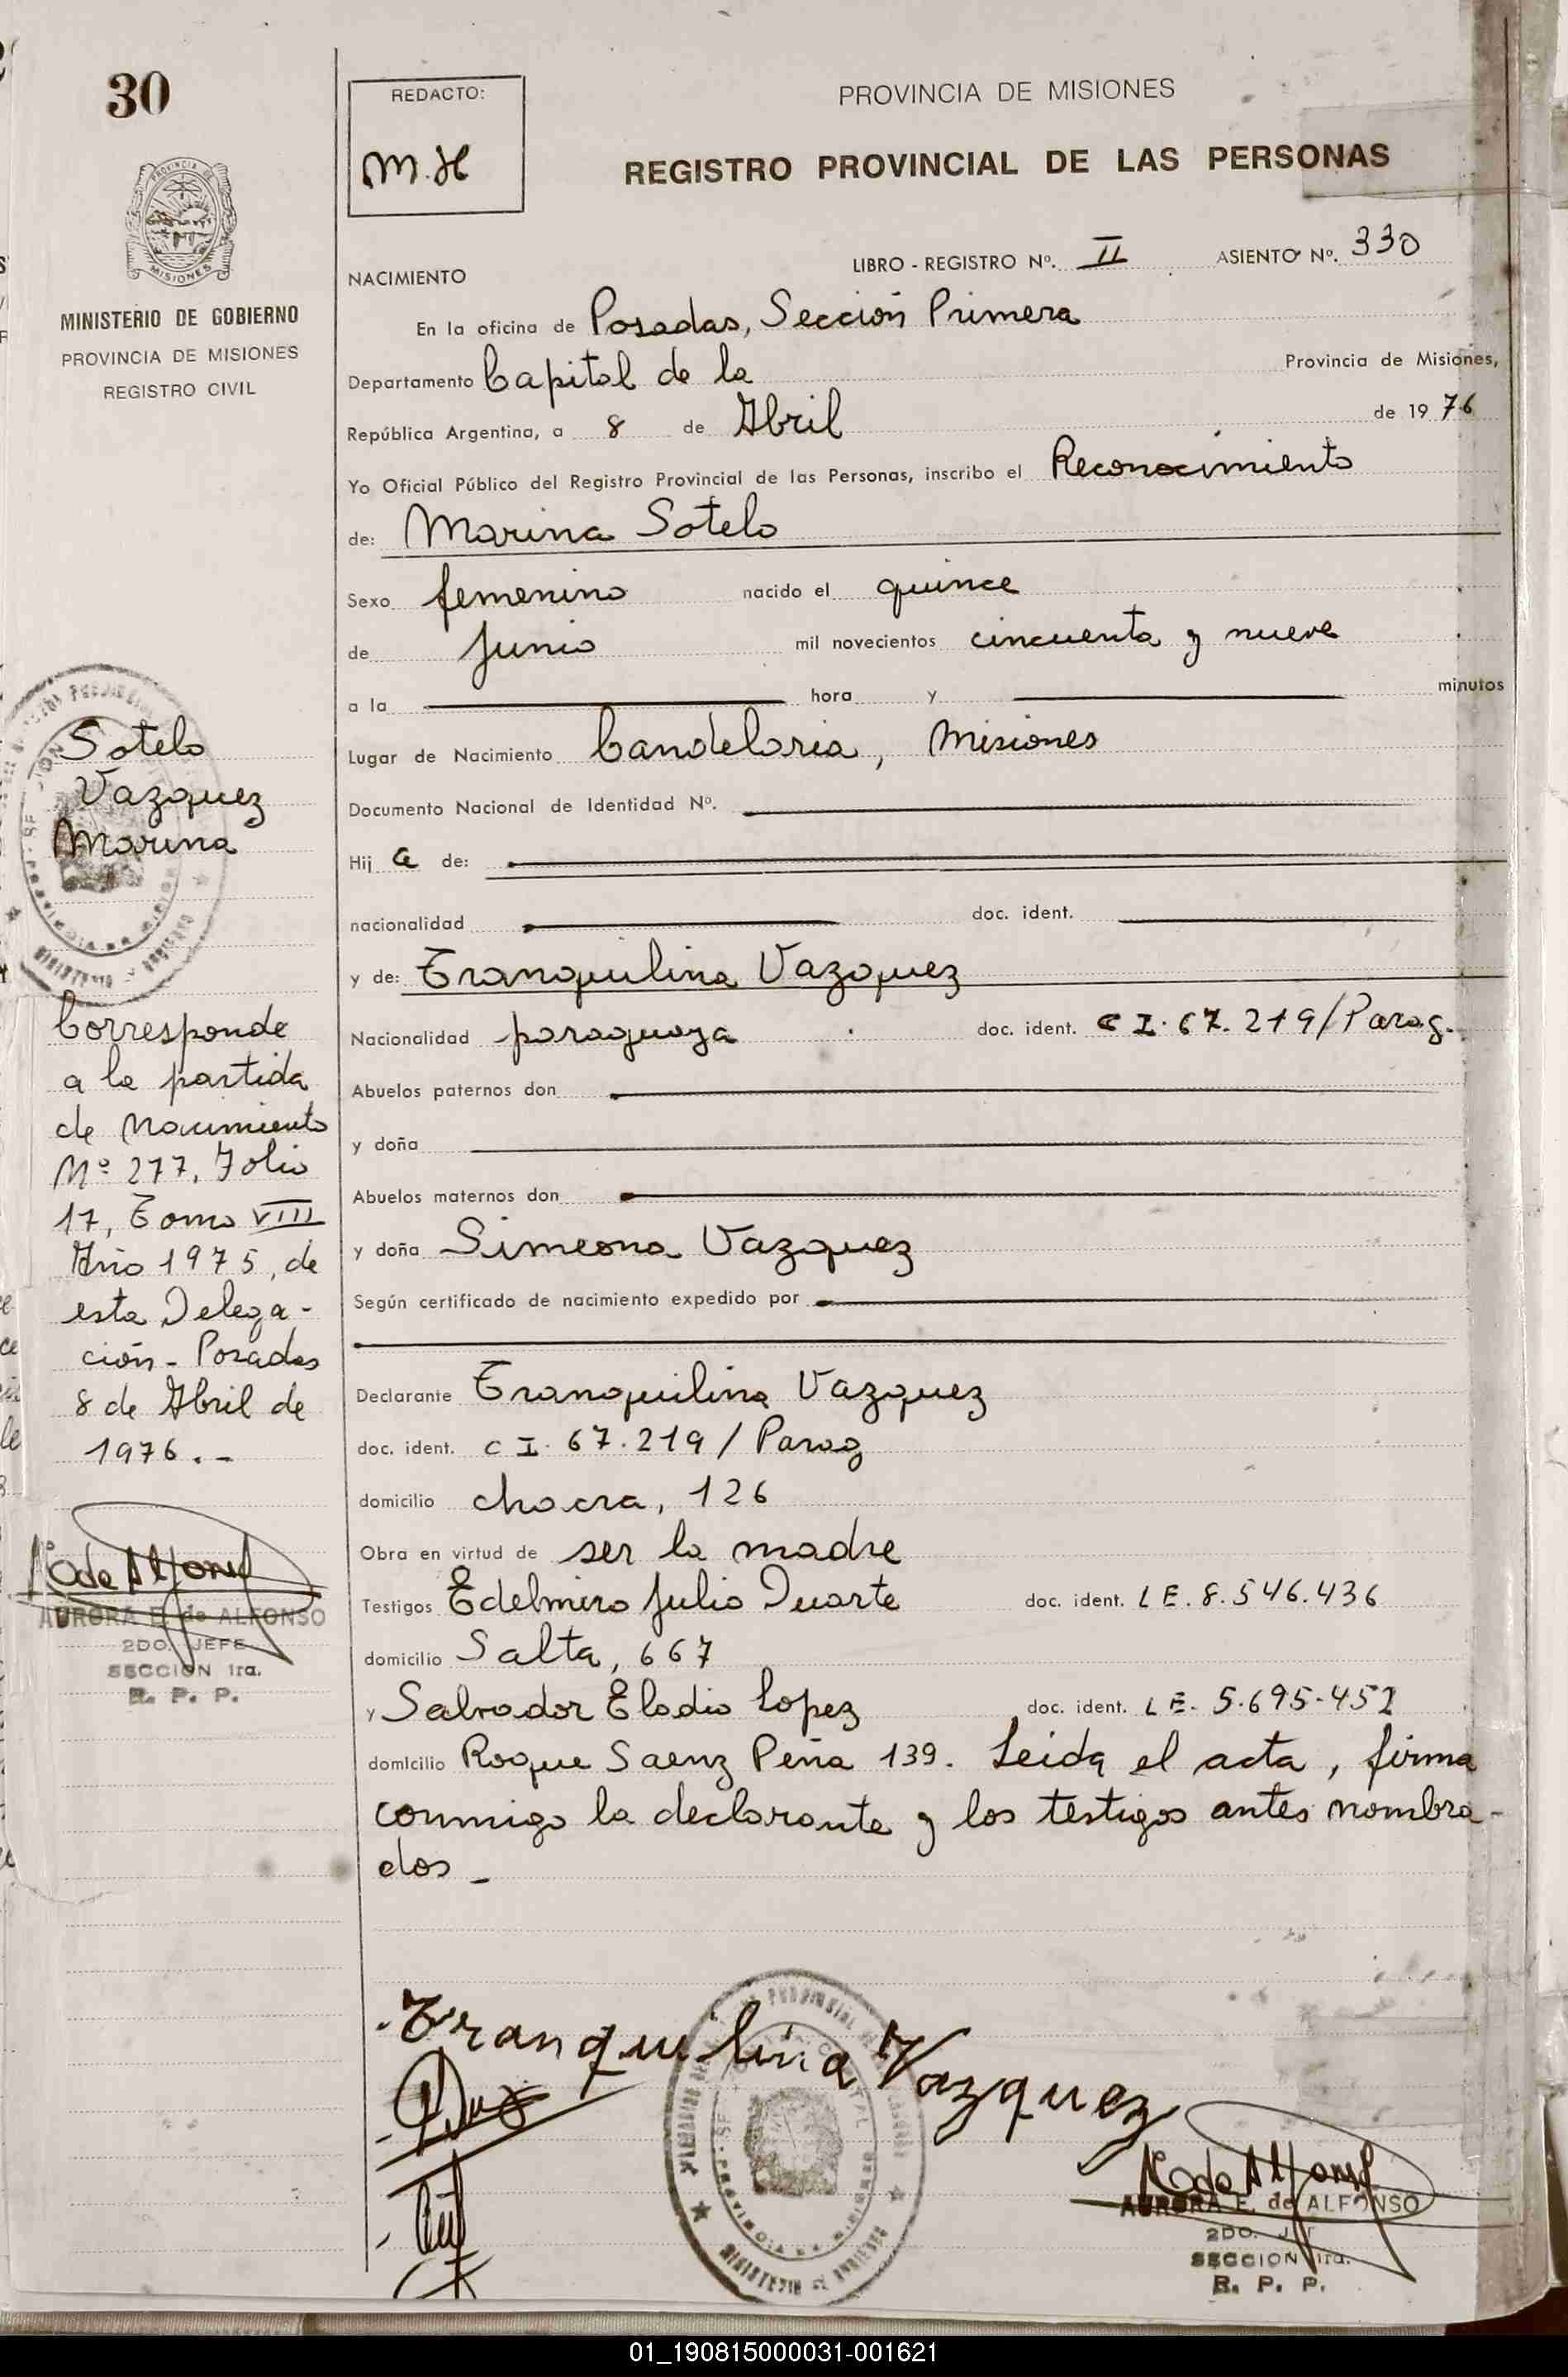 30
PROVINCIA DE
MISIONES
MINISTERIO DE GOBIERNO
PROVINCIA DE MISIONES
REGISTRO CIVIL
Sotelo
Vazquez
Marina
Corresponde
a la partida
de Nacimiento
Nº 277, Folio
17, Tomo VIII
Año 1975, de
esta Delega-
ción - Posadas
8 de Abril de
1976.-
AURORA E. de ALFONSO
2DO. JEFE
SECCION 1ra.
R. P. P.
REDACTO:
M.H
PROVINCIA DE MISIONES
REGISTRO PROVINCIAL DE LAS PERSONAS
NACIMIENTO LIBRO - REGISTRO Nº. II ASIENTO Nº. 330
En la oficina de Posadas, Sección Primera
Departamento Capital de la Provincia de Misiones,
República Argentina, a 8 de Abril de 19 76
Yo Oficial Público del Registro Provincial de las Personas, inscribo el Reconocimiento
de: Marina Sotelo
Sexo femenino nacido el quince
de Junio mil novecientos cincuenta y nueve
a la hora y minutos
Lugar de Nacimiento Candelaria, Misiones
Documento Nacional de Identidad Nº.
Hij a de:
nacionalidad doc. ident.
y de: Tranquilina Vazquez
Nacionalidad paraguaya doc. ident. C I. 67.219/Parag.
Abuelos paternos don
y doña
Abuelos maternos don
y doña Simeona Vazquez
Según certificado de nacimiento expedido por
Declarante Tranquilina Vazquez
doc. ident. C I. 67.219 / Parag
domicilio chacra, 126
Obra en virtud de ser la madre
Testigos Edelmiro Julio Duarte doc. ident. L E. 8.546.436
domicilio Salta, 667
y Salvador Eladio Lopez doc. ident. L E. 5.695.452
domicilio Roque Saenz Peña 139. Leida el acta, firma
conmigo la declarante y los testigos antes nombra-
dos -
Tranquilina Vazquez
AURORA E. de ALFONSO
2DO. JEFE
SECCION 1ra.
R. P. P.
01_190815000031-001621